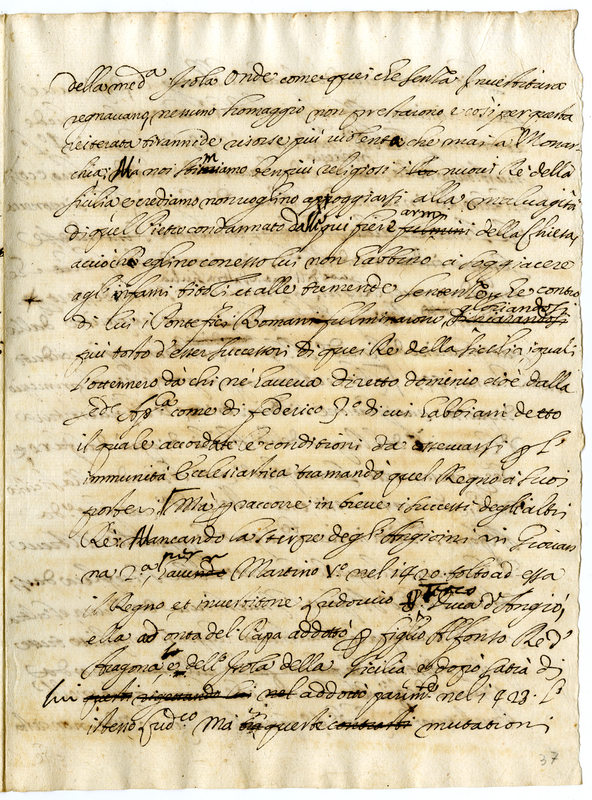 della med.ª Isola Onde come quei che senza Investitura
regnavano, nessuno homaggio non prestarono e così per questa
reiterata tirannide risorse più violenta che mai la Monar
chia; Mà noi stimiamo ben più religiosi nuovi Re della
Sicilia e crediamo non voglino appoggiarsi alla malvagità
di quel Pietro condannato dalli qui fieri armi fulmini della Chiesa,
acciò che eglino con esso lui non habbino a soggiacere
agl'infami titoli, et alle tremende sentenze che contro
di lui i Pontefici Romani fulminarono, gloriandosi
più tosto d'esser successori di quei Re della Sicilia i quali
l'ottennero da chi ne haveva diretto dominio cioè dalla
Sede Ap.ca come di Federico 3.º di cui habbiam detto
il quale accordate le conditioni da osservarsi p l'
immunità Ecclesiastica tramandò quel Regno a suoi
posteri. Mà p raccorre in breve i successi degli altri
Re: Mancando la stirpe degl'Angioini in Giovan
na 2.ª Martino V.º nel 1420. tolto ad essa
il Regno et investitone Ludovico Duca d'Angiò,
ella ad onta del Papa addottò p figlio Alfonso Re d'
Aragona, e dell'Isola della Sicilia e dopo satia di
lui addottò parim.te nel 1423. l'
istesso Lud.co Mà queste mutationi
37